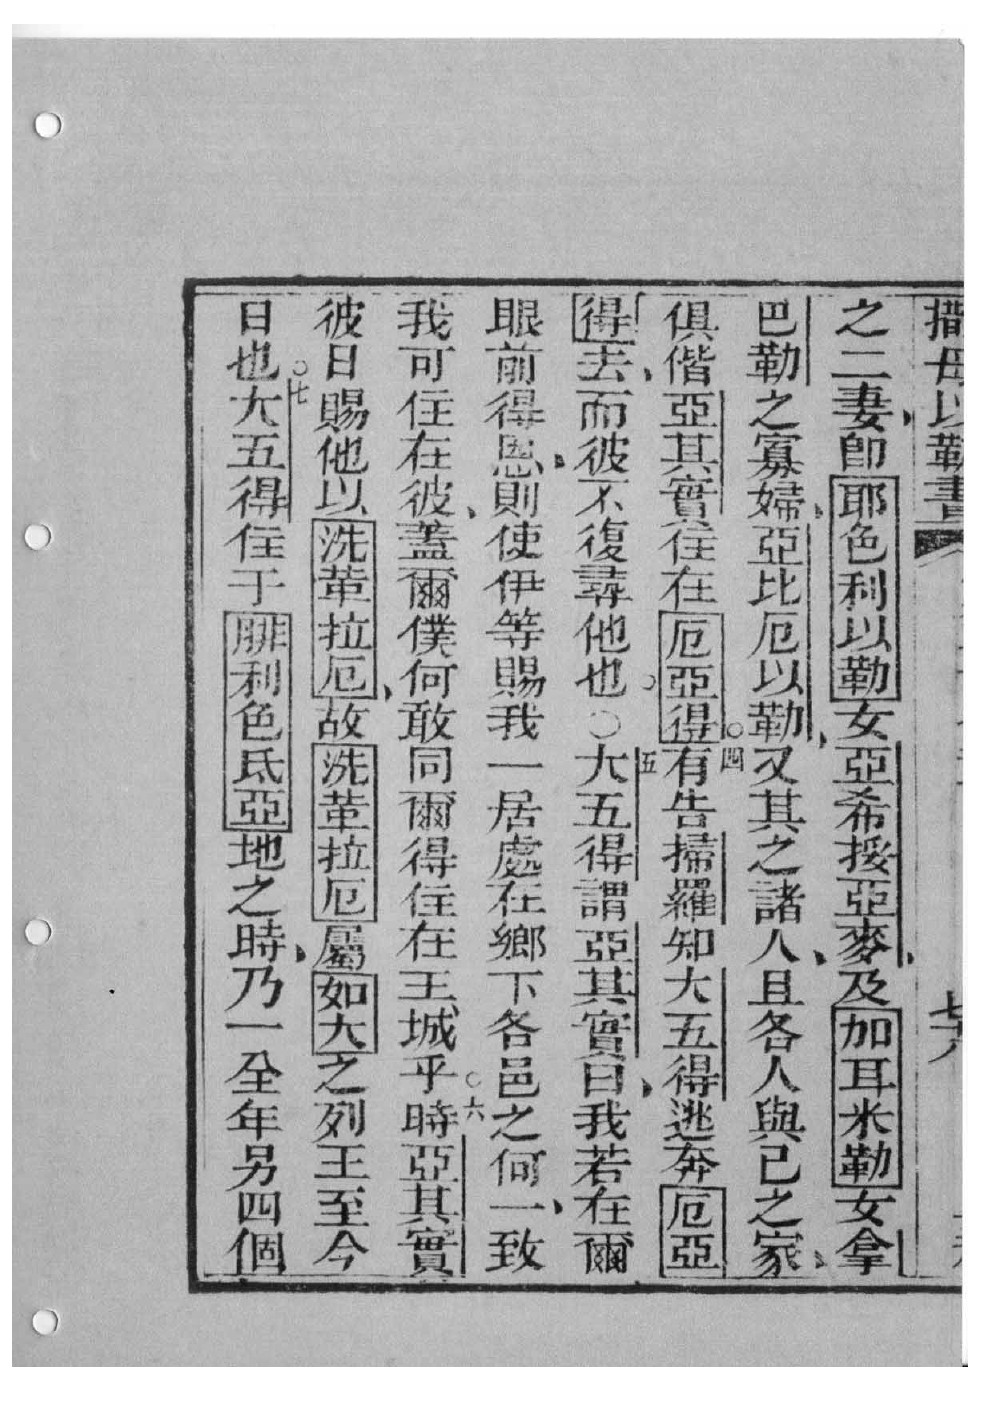 撒母以勒書
之二妻卽耶色利以勒女亞希授亞麥及加耳米勒女拿
巴勒之寡婦亞比厄以勒○四又其之諸人且各人與己之家
俱偕亞其實住在厄亞得有告掃羅知大五得逃奔厄亞
得去而彼不復尋他也○○五大五得謂亞其實曰我若在爾
眼前得恩則使伊等賜我一居處在鄉下各邑之何一致
我可住在彼蓋爾僕何敢同爾得住在王城乎○六時亞其實
彼日賜他以洗革拉厄故洗革拉厄屬如大之列王至今
日也○七大五得住于腓利色氐亞地之時乃一全年另四個